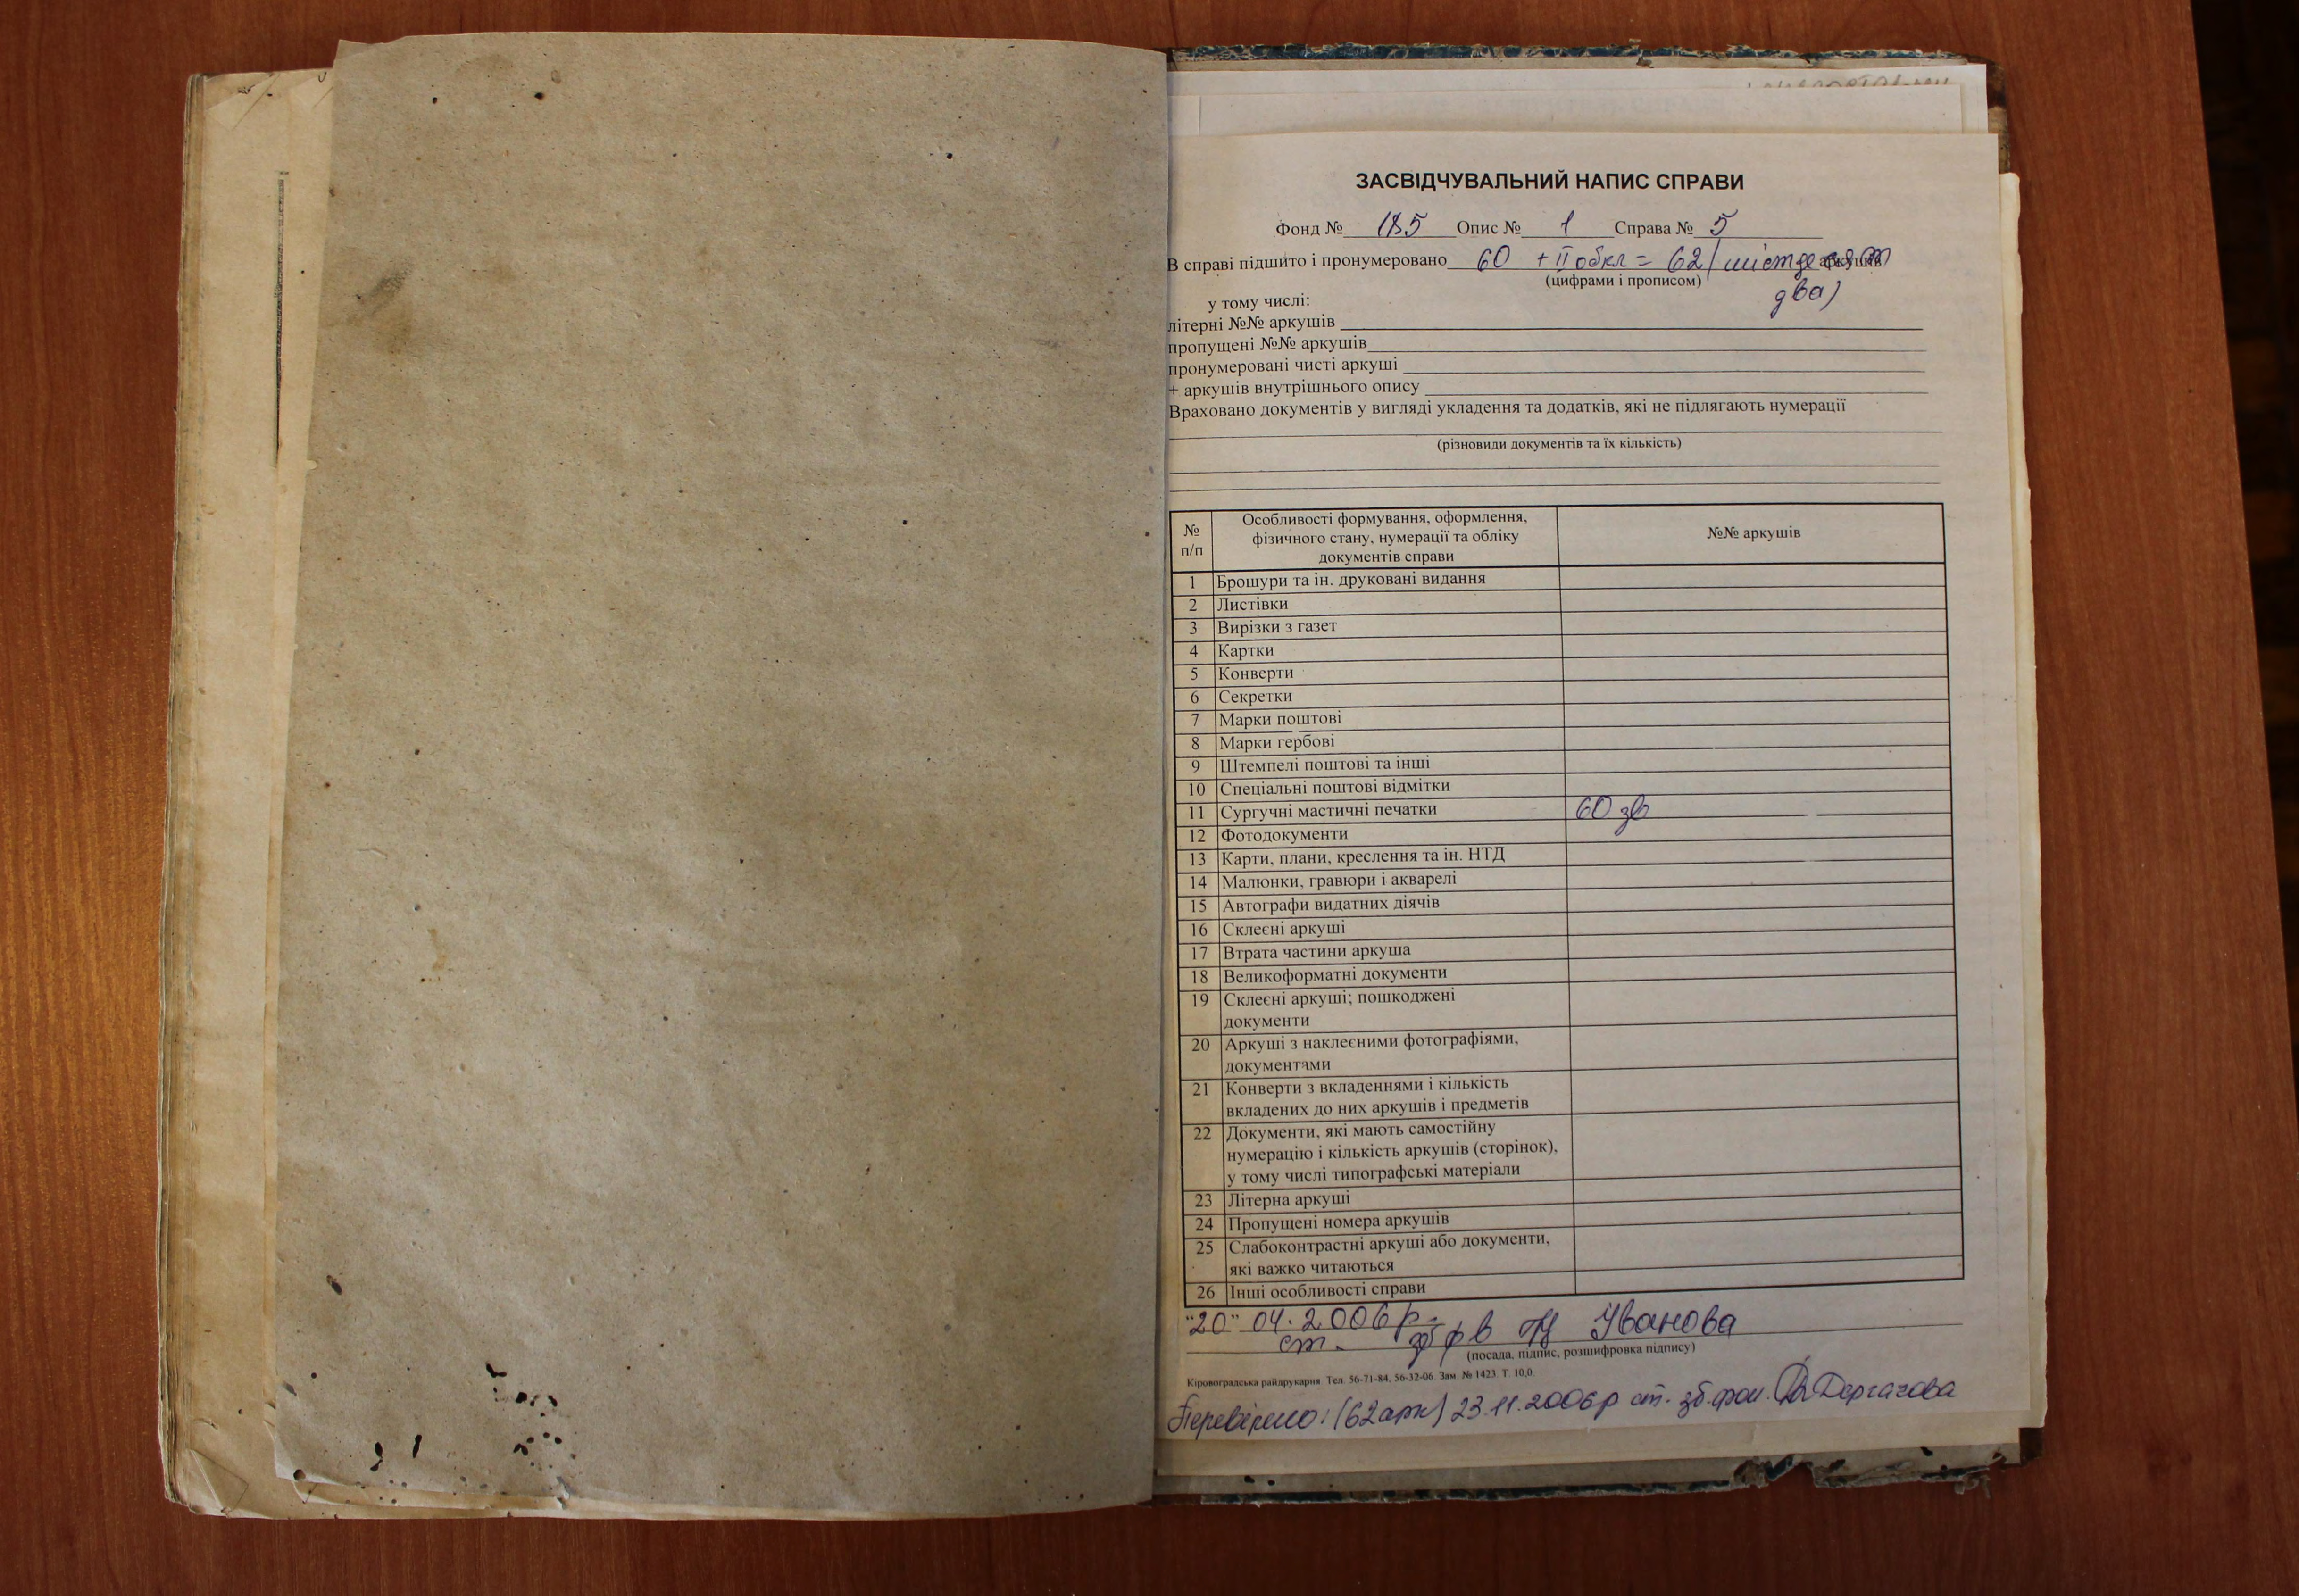 ЗАСВІДЧУВАЛЬНИЙ НАПИС СПРАВИ
Фонд № 185 Опис № 1 Справа № 5
В справі підшито і пронумеровано 60 + II обкл = 62 (шістдесят аркушів
(цифрами і прописом) два)
у тому числі:
літерні №№ аркушів
пропущені №№ аркушів
пронумеровані чисті аркуші
+ аркушів внутрішнього опису
Враховано документів у вигляді укладення та додатків, які не підлягають нумерації
(різновиди документів та їх кількість)
№ п/п Особливості формування, оформлення, фізичного стану, нумерації та обліку документів справи №№ аркушів
1 Брошури та ін. друковані видання
2 Листівки
3 Вирізки з газет
4 Картки
5 Конверти
6 Секретки
7 Марки поштові
8 Марки гербові
9 Штемпелі поштові та інші
10 Спеціальні поштові відмітки
11 Сургучні мастичні печатки 60 зв
12 Фотодокументи
13 Карти, плани, креслення та ін. НТД
14 Малюнки, гравюри і акварелі
15 Автографи видатних діячів
16 Склеєні аркуші
17 Втрата частини аркуша
18 Великоформатні документи
19 Склеєні аркуші; пошкоджені
документи
20 Аркуші з наклеєними фотографіями,
документами
21 Конверти з вкладеннями і кількість
вкладених до них аркушів і предметів
22 Документи, які мають самостійну
нумерацію і кількість аркушів (сторінок),
у тому числі типографські матеріали
23 Літерна аркуші
24 Пропущені номера аркушів
25 Слабоконтрастні аркуші або документи,
які важко читаються
26 Інші особливості справи
"20" 04. 2006 р.
ст. зб ф в Іванова
(посада, підпис, розшифровка підпису)
Кіровоградська райдрукарня. Тел. 56-71-84, 56-32-06. Зам. № 1423. Т. 10,0.
Перевірено: (62 арк) 23.11.2006р ст. зб. фон. Дергачова